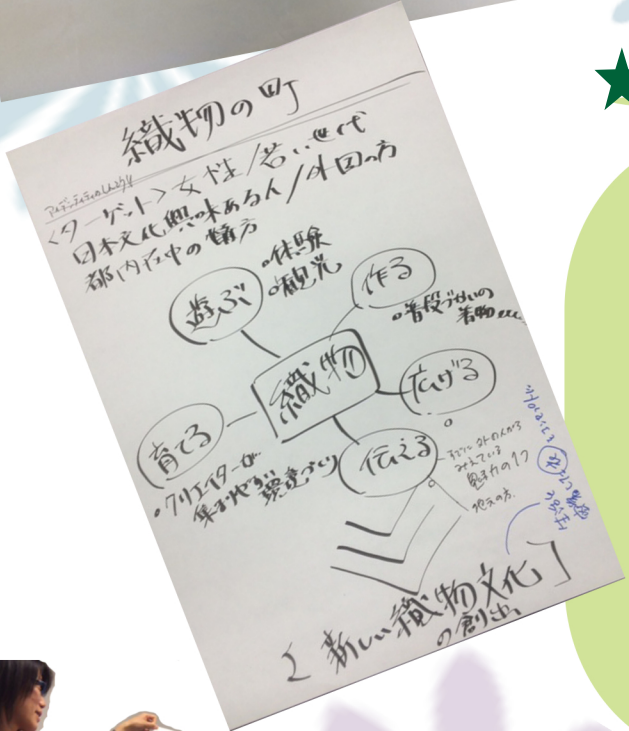 織物の町
アイデンティティの
<ターゲット> 女性/若い世代
日本文化興味ある人/外国の方
都内在中の
遊ぶ
・体験
・観光
作る
・普段づかいの
着物
織物
広げる
育てる
・クリエイターが
集まりやすい
環境づくり
伝える
すでに外の人から
みえている
魅力の1つ
地元の方
新しい織物文化
の創出